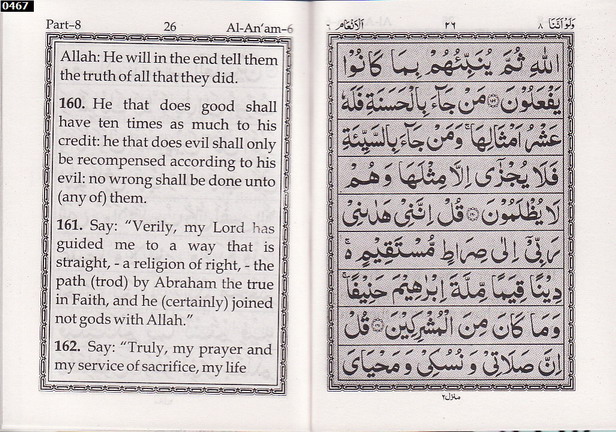 0467
Part–8 26 Al-An'am–6
Allah: He will in the end tell them
the truth of all that they did.
160. He that does good shall
have ten times as much to his
credit: he that does evil shall only
be recompensed according to his
evil: no wrong shall be done unto
(any of) them.
161. Say: “Verily, my Lord has
guided me to a way that is
straight, - a religion of right, - the
path (trod) by Abraham the true
in Faith, and he (certainly) joined
not gods with Allah.”
162. Say: “Truly, my prayer and
my service of sacrifice, my life
وَلَوْ اَنَّنَا ٨ ٢٦ اَلْاَنْعَام ٦
اللّٰهِ ثُمَّ يُنَبِّئُهُمْ بِمَا كَانُوْا
يَفْعَلُوْنَ ۝۱۵۹ مَنْ جَآءَ بِالْحَسَنَةِ فَلَهٗ
عَشْرُ اَمْثَالِهَا ۚ وَمَنْ جَآءَ بِالسَّيِّئَةِ
فَلَا يُجْزٰٓى اِلَّا مِثْلَهَا وَهُمْ
لَا يُظْلَمُوْنَ ۝۱۶۰ قُلْ اِنَّنِيْ هَدٰىنِيْ
رَبِّيْٓ اِلٰى صِرَاطٍ مُّسْتَقِيْمٍ ۚ
دِيْنًا قِيَمًا مِّلَّةَ اِبْرٰهِيْمَ حَنِيْفًا ۚ
وَمَا كَانَ مِنَ الْمُشْرِكِيْنَ ۝۱۶۱ قُلْ
اِنَّ صَلَاتِيْ وَ نُسُكِيْ وَ مَحْيَايَ
منزل ٢